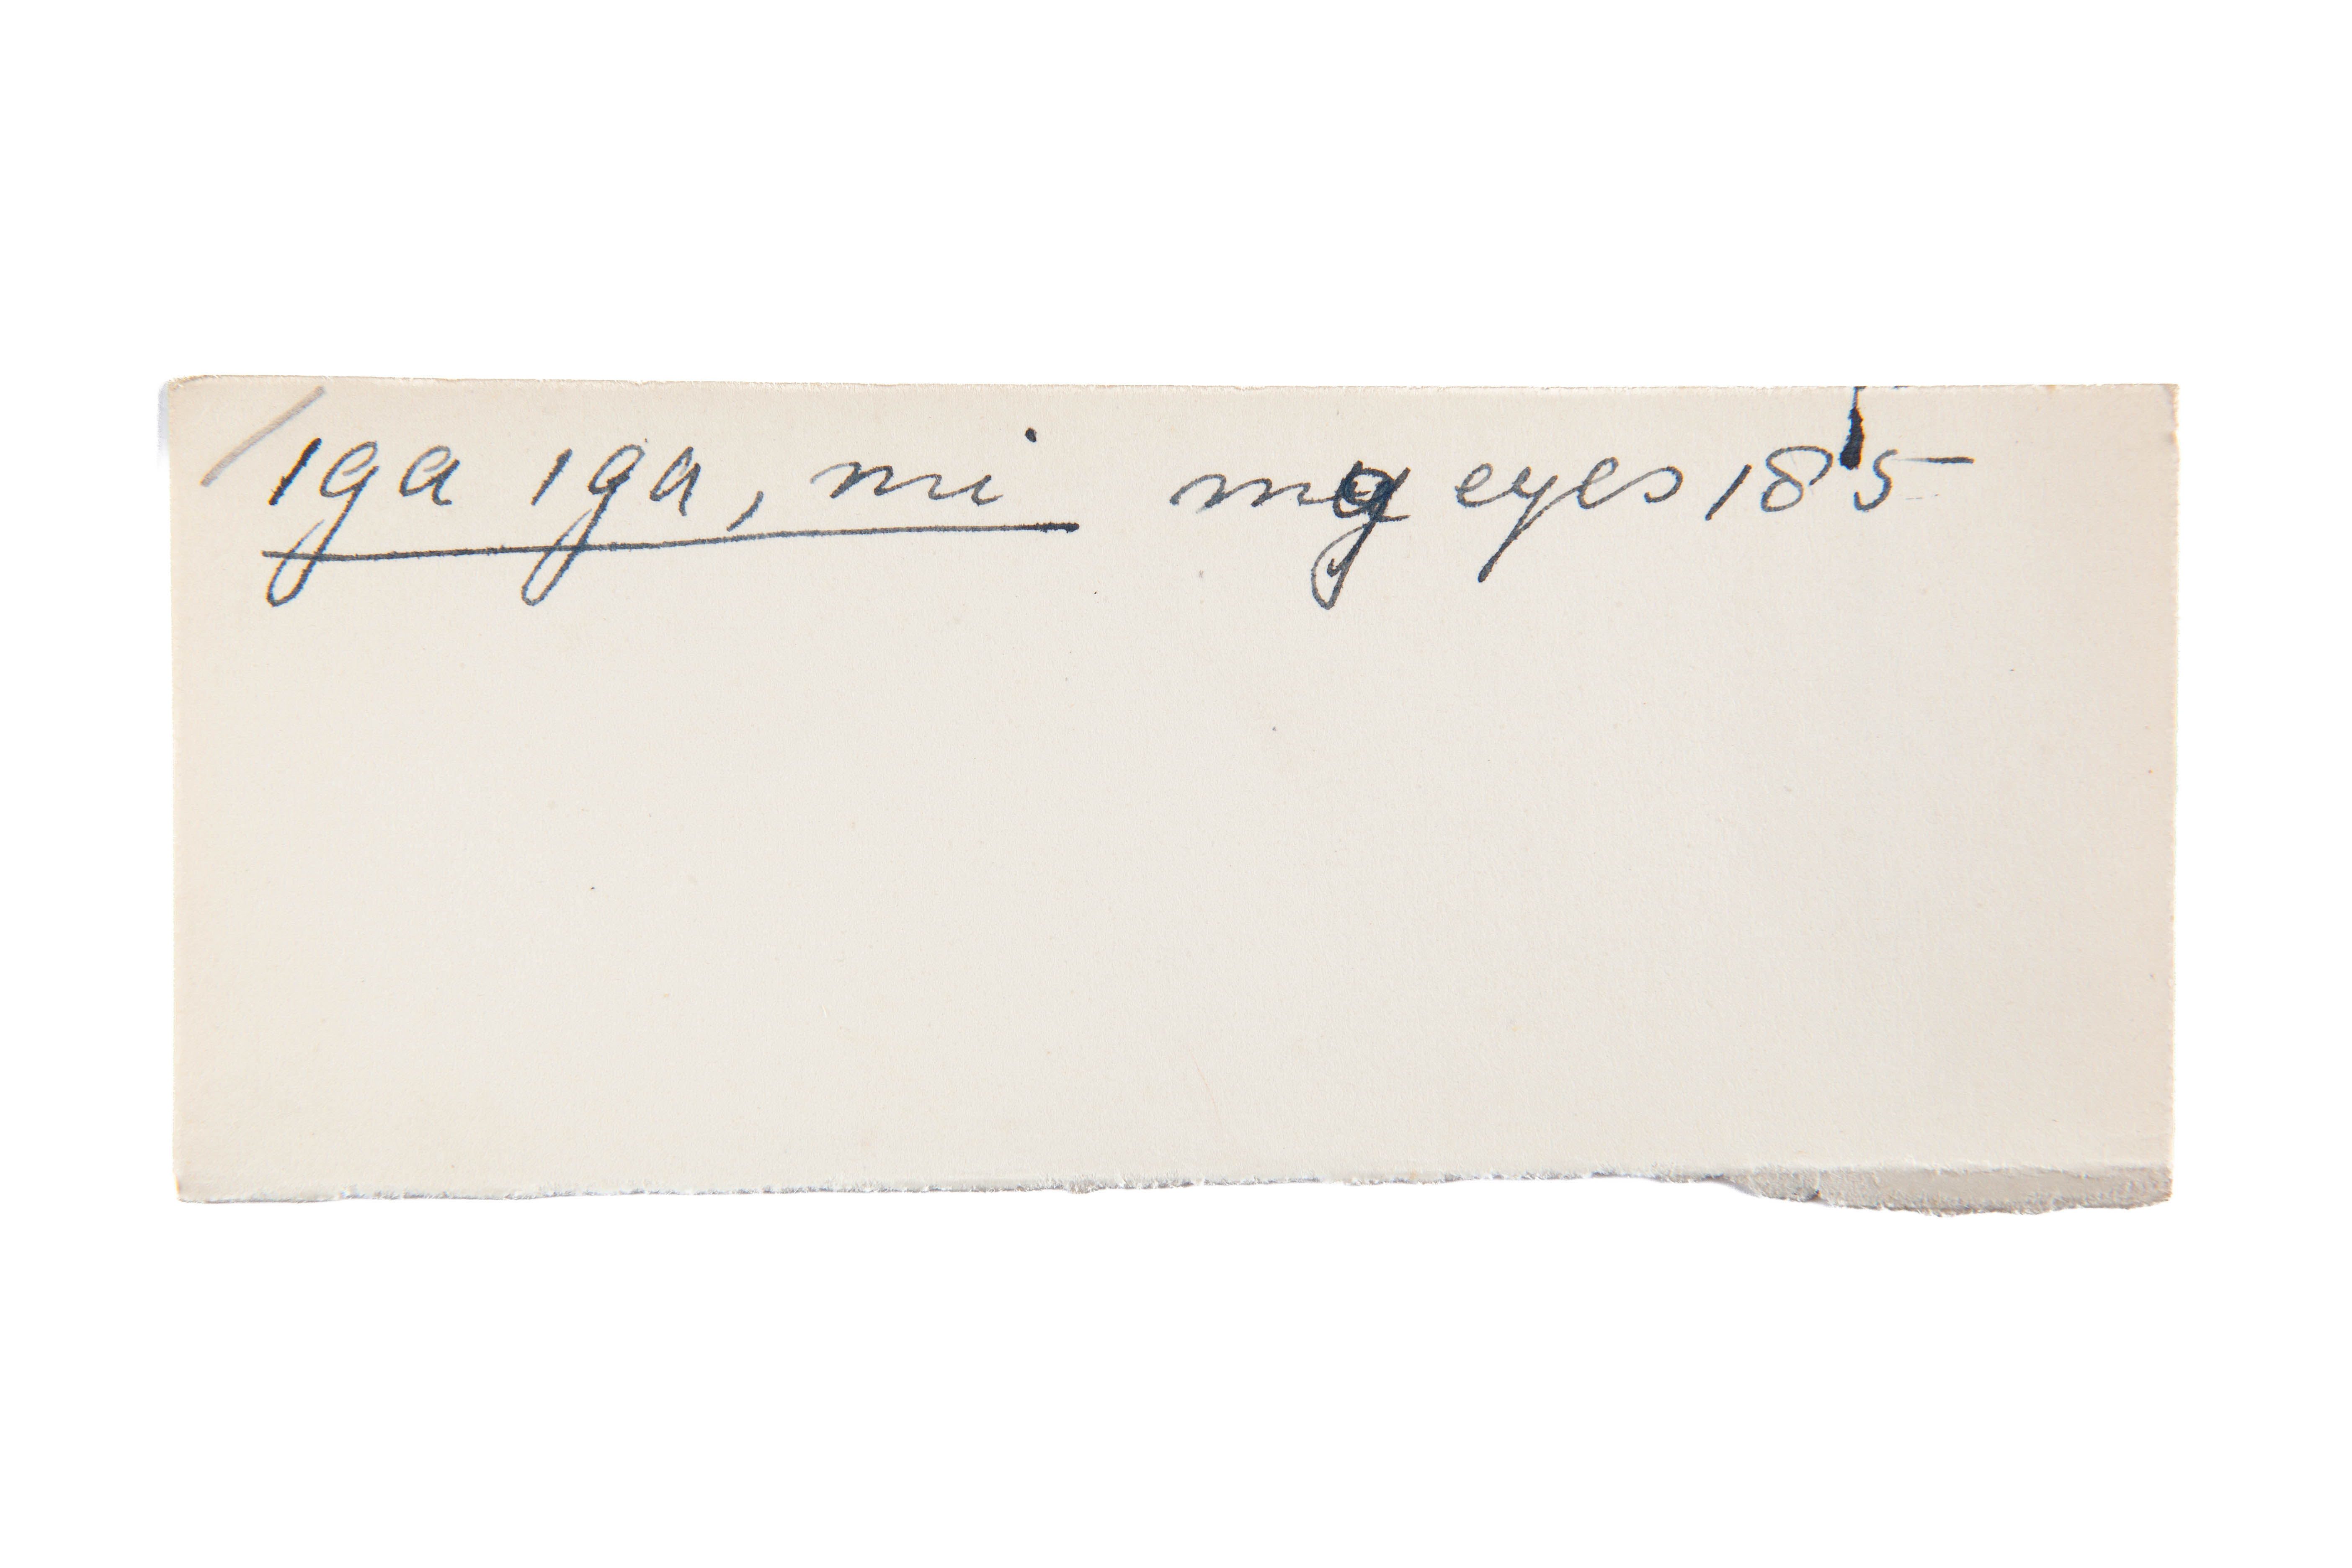 iga iga, mi my eyes 185